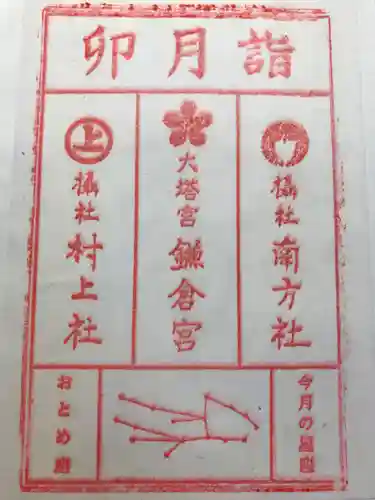 卯月詣
摂社
南方社
大塔宮
鎌倉宮
上
摂社
村上社
今月の星座
おとめ座